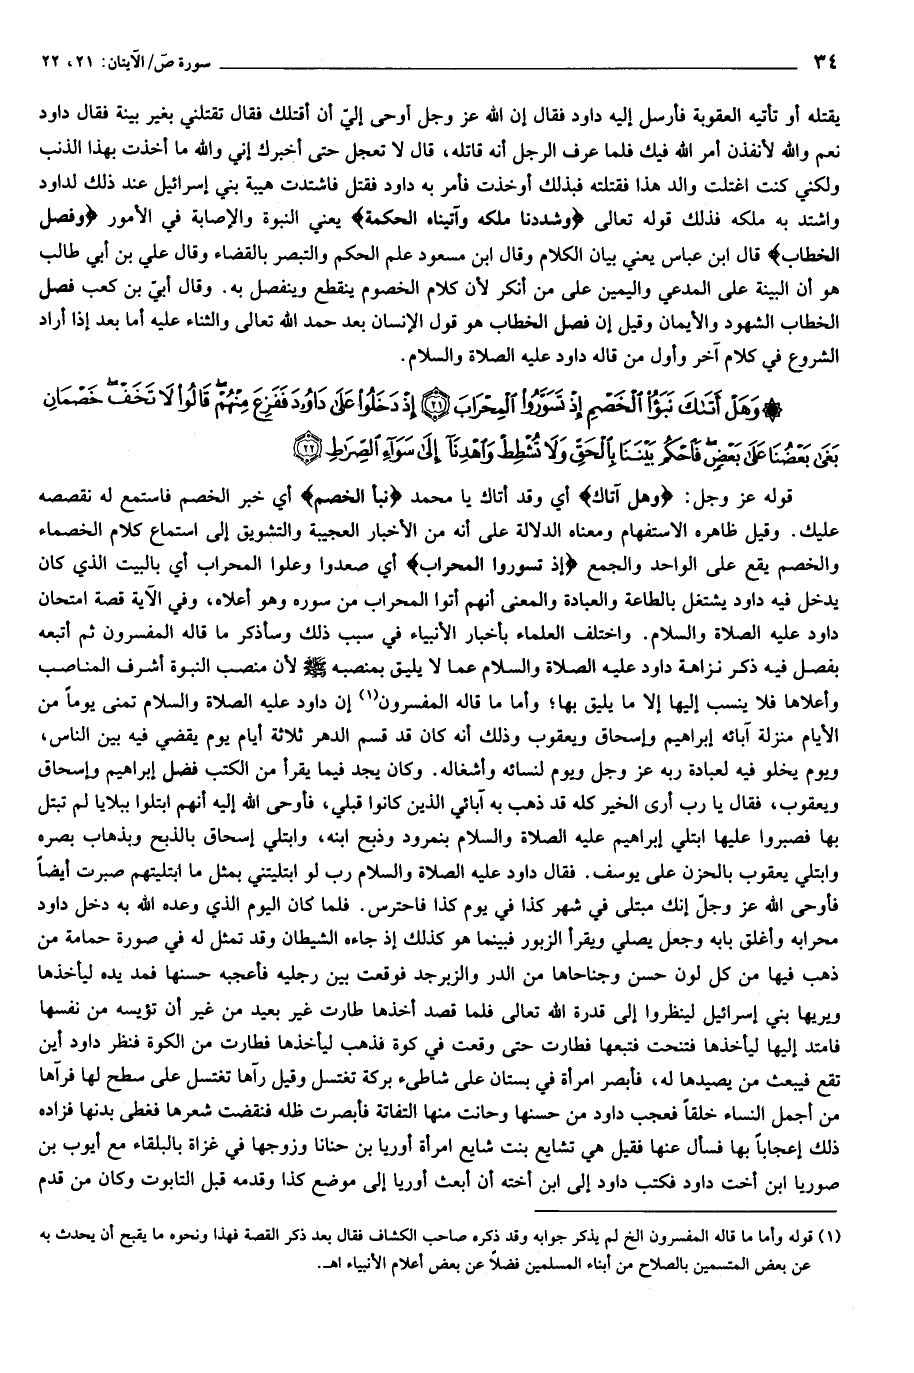 ٣٤ سورة صۤ/ الآيتان: ٢١، ٢٢
يقتله أو تأتيه العقوبة فأرسل إليه داود فقال إن الله عز وجل أوحى إليّ أن أقتلك فقال تقتلني بغير بينة فقال داود
نعم والله لأنفذن أمر الله فيك فلما عرف الرجل أنه قاتله، قال لا تعجل حتى أخبرك إني والله ما أخذت بهذا الذنب
ولكني كنت اغتلت والد هذا فقتلته فبذلك أوخذت فأمر به داود فقتل فاشتدت هيبة بني إسرائيل عند ذلك لداود
واشتد به ملكه فذلك قوله تعالى ﴿وشددنا ملكه وآتيناه الحكمة﴾ يعني النبوة والإصابة في الأمور ﴿وفصل
الخطاب﴾ قال ابن عباس يعني بيان الكلام وقال ابن مسعود علم الحكم والتبصر بالقضاء وقال علي بن أبي طالب
هو أن البينة على المدعي واليمين على من أنكر لأن كلام الخصوم ينقطع وينفصل به. وقال أبيّ بن كعب فصل
الخطاب الشهود والأيمان وقيل إن فصل الخطاب هو قول الإنسان بعد حمد الله تعالى والثناء عليه أما بعد إذا أراد
الشروع في كلام آخر وأول من قاله داود عليه الصلاة والسلام.
۞ وَهَلْ أَتَىٰكَ نَبَؤُا۟ ٱلْخَصْمِ إِذْ تَسَوَّرُوا۟ ٱلْمِحْرَابَ ﴿٢١﴾ إِذْ دَخَلُوا۟ عَلَىٰ دَاوُۥدَ فَفَزِعَ مِنْهُمْ ۖ قَالُوا۟ لَا تَخَفْ ۖ خَصْمَانِ
بَغَىٰ بَعْضُنَا عَلَىٰ بَعْضٍ فَٱحْكُم بَيْنَنَا بِٱلْحَقِّ وَلَا تُشْطِطْ وَٱهْدِنَآ إِلَىٰ سَوَآءِ ٱلصِّرَٰطِ ﴿٢٢﴾
قوله عز وجل: ﴿وهل آتاك﴾ أي وقد أتاك يا محمد ﴿نبأ الخصم﴾ أي خبر الخصم فاستمع له نقصصه
عليك. وقيل ظاهره الاستفهام ومعناه الدلالة على أنه من الأخبار العجيبة والتشويق إلى استماع كلام الخصماء
والخصم يقع على الواحد والجمع ﴿إذ تسوروا المحراب﴾ أي صعدوا وعلوا المحراب أي بالبيت الذي كان
يدخل فيه داود يشتغل بالطاعة والعبادة والمعنى أنهم أتوا المحراب من سوره وهو أعلاه، وفي الآية قصة امتحان
داود عليه الصلاة والسلام. واختلف العلماء بأخبار الأنبياء في سبب ذلك وسأذكر ما قاله المفسرون ثم أتبعه
بفصل فيه ذكر نزاهة داود عليه الصلاة والسلام عما لا يليق بمنصبه ﷺ لأن منصب النبوة أشرف المناصب
وأعلاها فلا ينسب إليها إلا ما يليق بها؛ وأما ما قاله المفسرون(١) إن داود عليه الصلاة والسلام تمنى يوماً من
الأيام منزلة آبائه إبراهيم وإسحاق ويعقوب وذلك أنه كان قد قسم الدهر ثلاثة أيام يوم يقضي فيه بين الناس،
ويوم يخلو فيه لعبادة ربه عز وجل ويوم لنسائه وأشغاله. وكان يجد فيما يقرأ من الكتب فضل إبراهيم وإسحاق
ويعقوب، فقال يا رب أرى الخير كله قد ذهب به آبائي الذين كانوا قبلي، فأوحى الله إليه أنهم ابتلوا ببلايا لم تبتل
بها فصبروا عليها ابتلي إبراهيم عليه الصلاة والسلام بنمرود وذبح ابنه، وابتلي إسحاق بالذبح وبذهاب بصره
وابتلي يعقوب بالحزن على يوسف. فقال داود عليه الصلاة والسلام رب لو ابتليتني بمثل ما ابتليتهم صبرت أيضاً
فأوحى الله عز وجلّ إنك مبتلى في شهر كذا في يوم كذا فاحترس. فلما كان اليوم الذي وعده الله به دخل داود
محرابه وأغلق بابه وجعل يصلي ويقرأ الزبور فبينما هو كذلك إذ جاءه الشيطان وقد تمثل له في صورة حمامة من
ذهب فيها من كل لون حسن وجناحاها من الدر والزبرجد فوقعت بين رجليه فأعجبه حسنها فمد يده ليأخذها
ويريها بني إسرائيل لينظروا إلى قدرة الله تعالى فلما قصد أخذها طارت غير بعيد من غير أن تؤيسه من نفسها
فامتد إليها ليأخذها فتنحت فتبعها فطارت حتى وقعت في كوة فذهب ليأخذها فطارت من الكوة فنظر داود أين
تقع فيبعث من يصيدها له، فأبصر امرأة في بستان على شاطىء بركة تغتسل وقيل رآها تغتسل على سطح لها فرآها
من أجمل النساء خلقاً فعجب داود من حسنها وحانت منها التفاتة فأبصرت ظله فنقضت شعرها فغطى بدنها فزاده
ذلك إعجاباً بها فسأل عنها فقيل هي تشايع بنت شايع امرأة أوريا بن حنانا وزوجها في غزاة بالبلقاء مع أيوب بن
صوريا ابن أخت داود فكتب داود إلى ابن أخته أن أبعث أوريا إلى موضع كذا وقدمه قبل التابوت وكان من قدم
(١) قوله وأما ما قاله المفسرون الخ لم يذكر جوابه وقد ذكره صاحب الكشاف فقال بعد ذكر القصة فهذا ونحوه ما يقبح أن يحدث به
عن بعض المتسمين بالصلاح من أبناء المسلمين فضلاً عن بعض أعلام الأنبياء اهـ.